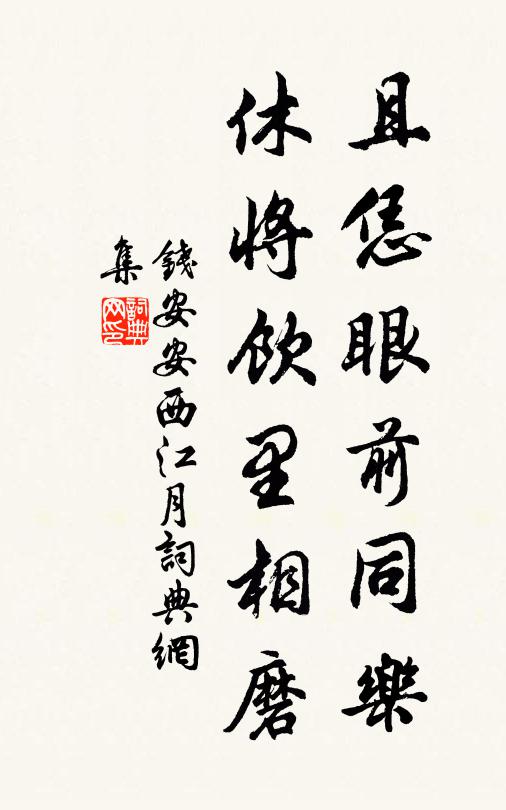 且恁眼前同樂
休將飲里相磨
錢安安西江月詞典網
集
詞典網印